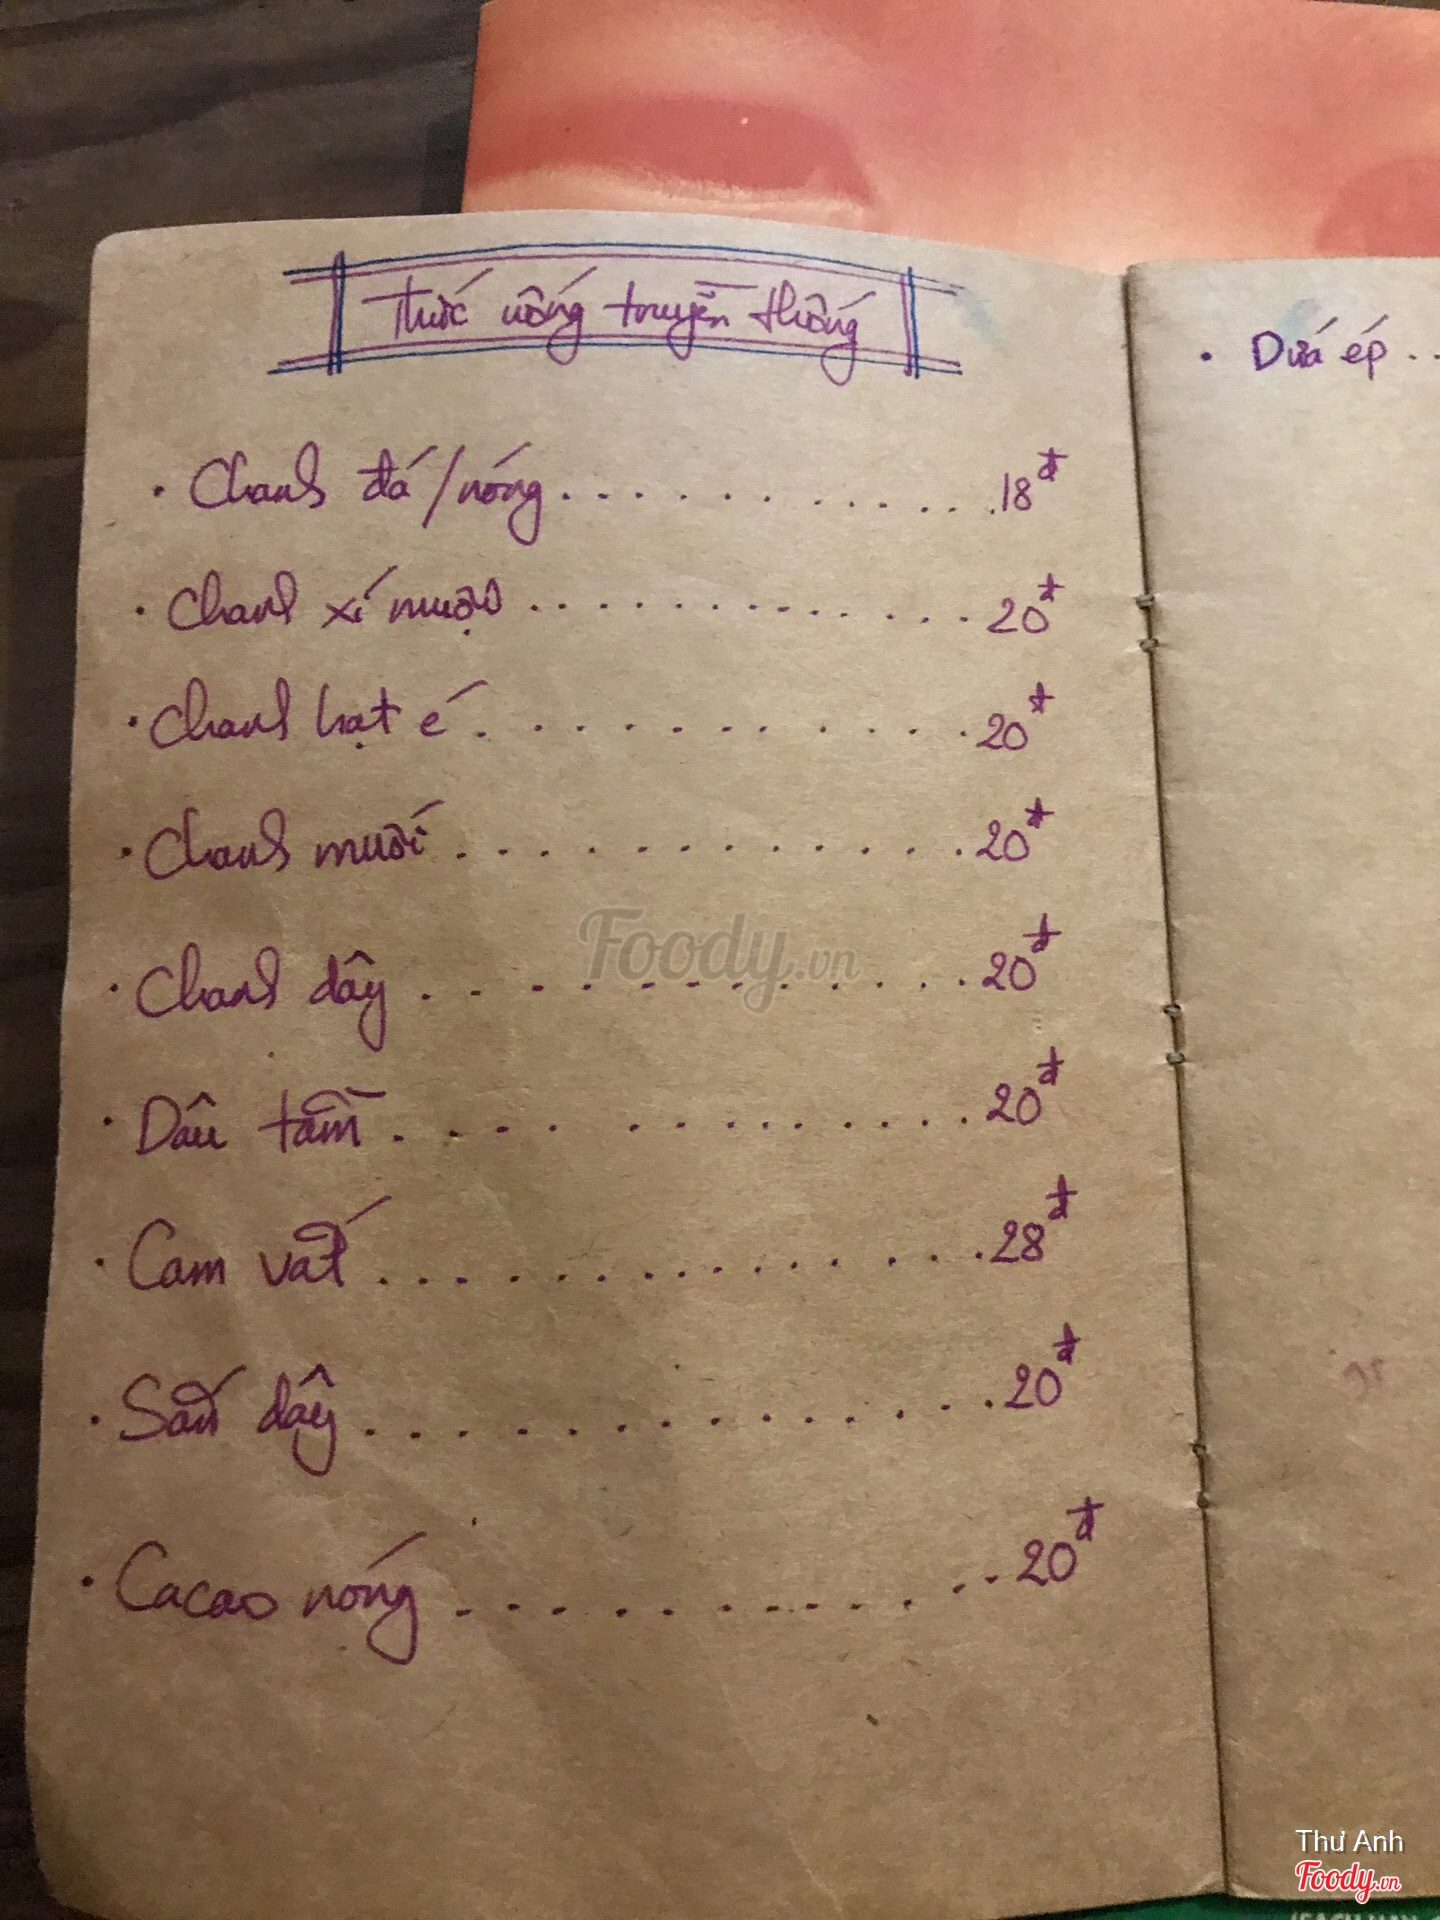 Thức uống truyền thống
• Chanh đá/nóng .......... 18đ
• Chanh xí muội .......... 20đ
• Chanh hạt é .......... 20đ
• Chanh muối .......... 20đ
• Chanh dây .......... 20đ
• Dâu tằm .......... 20đ
• Cam vắt .......... 28đ
• Sắn dây .......... 20đ
• Cacao nóng .......... 20đ
• Dứa ép ..
Foody.vn
Thư Anh
Foody.vn